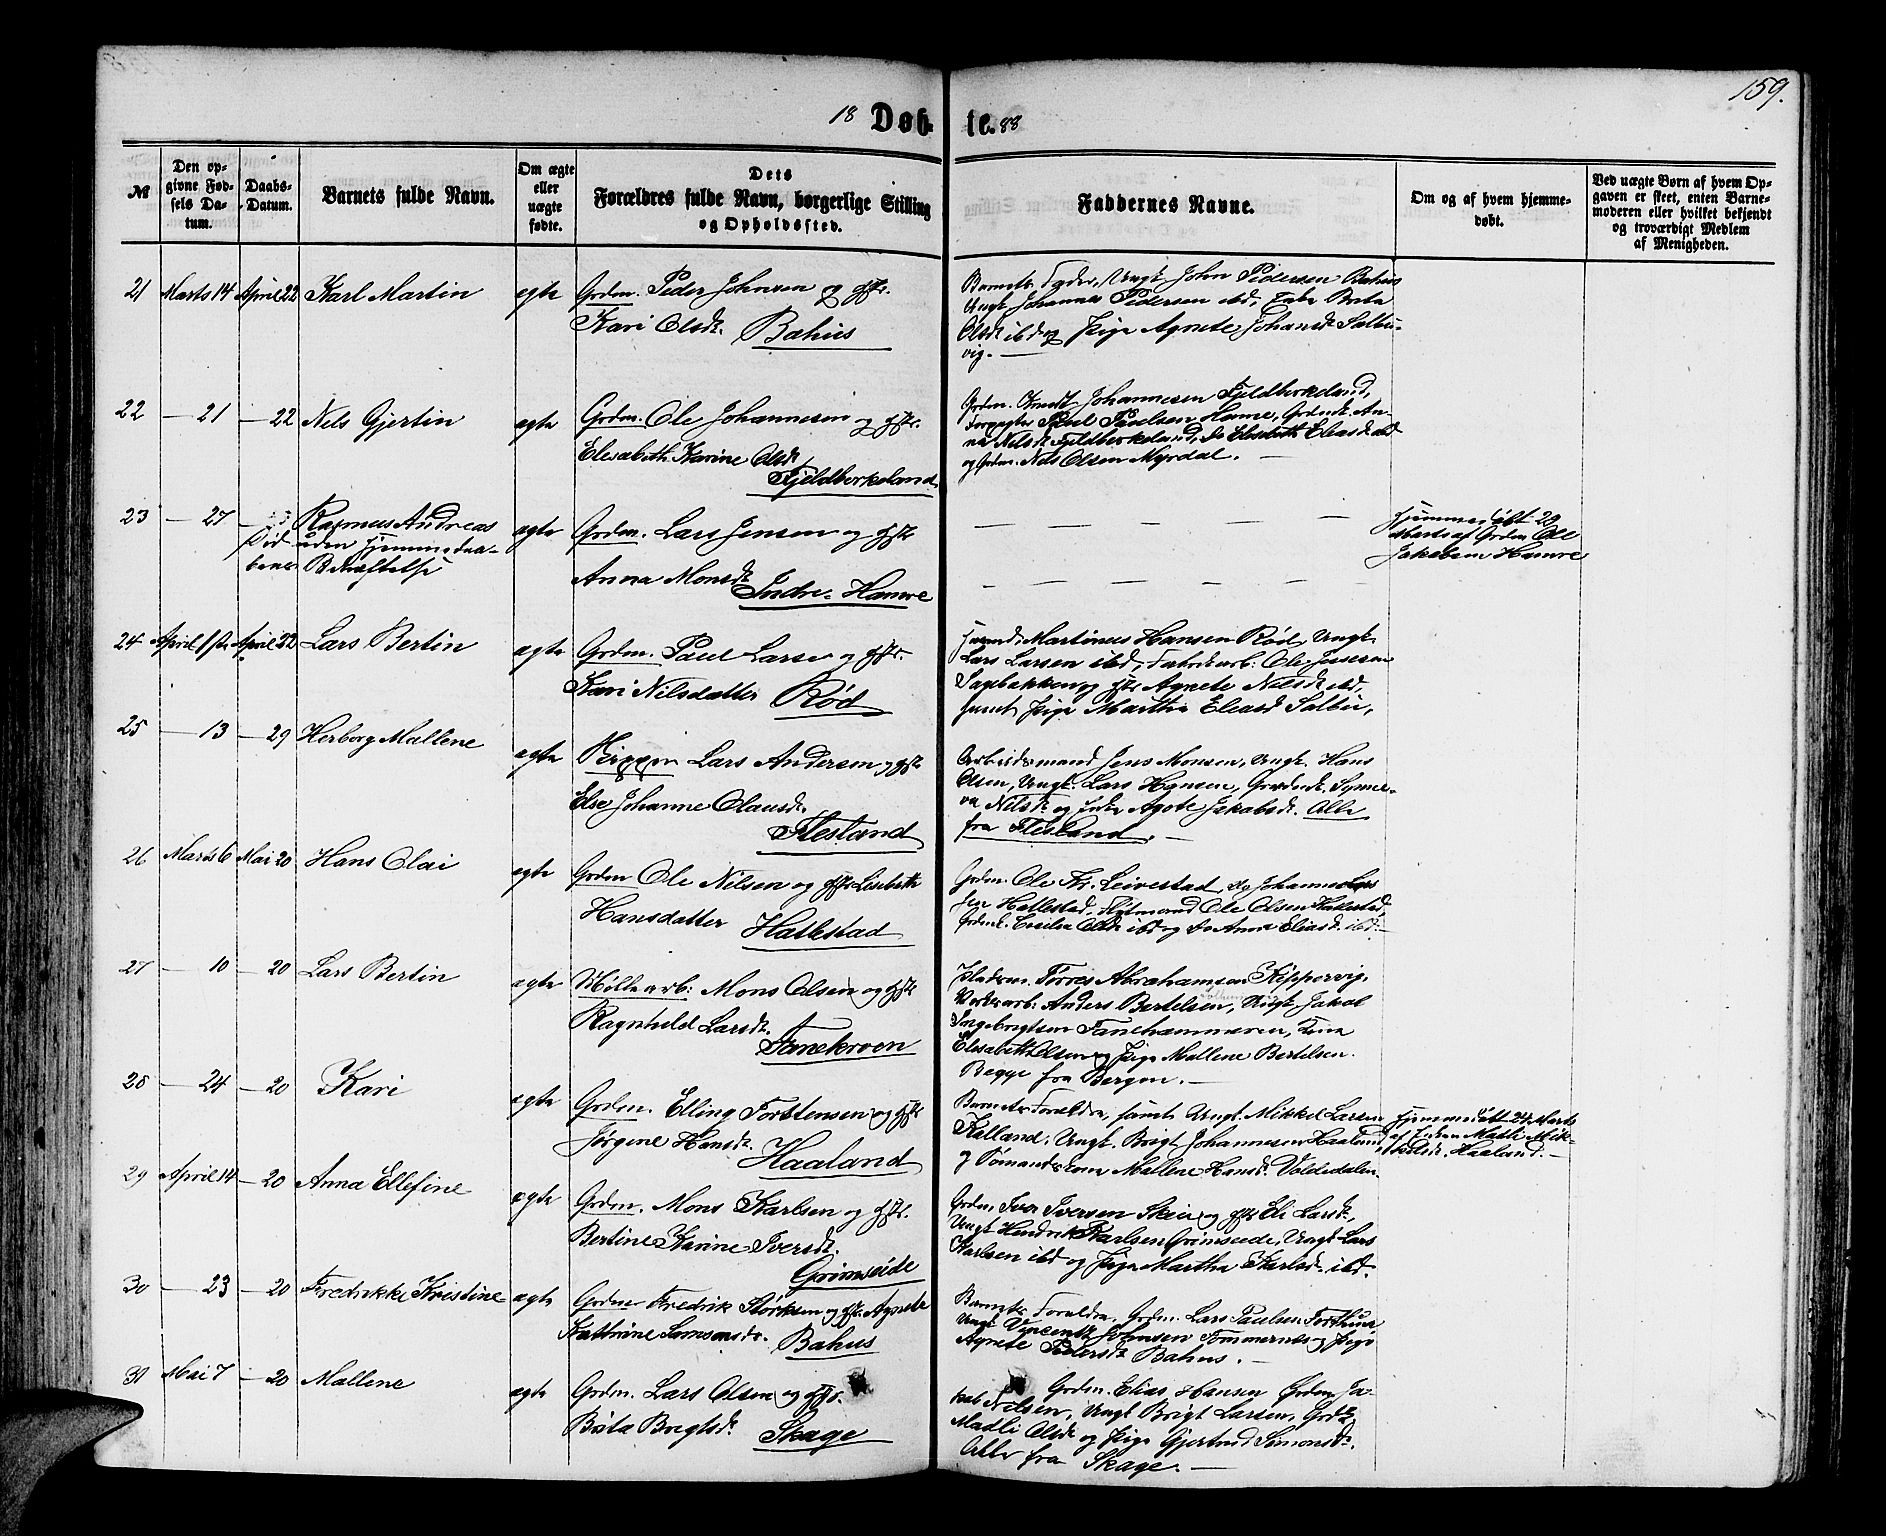 159.
18 Døb- te. 88
№
Den op-
givne Fød-
sels Da-
tum.
Daabs-
Datum.
Barnets fulde Navn.
Om ægte
eller
uægte
fødte.
Dets
Forældres fulde Navn, borgerlige Stilling
og Opholdssted.
Faddernes Navne.
Om og af hvem hjemme-
døbt.
Ved uægte Børn af hvem Op-
gaven er skeet, enten Barne-
moderen eller hvilket bekjendt
og troværdigt Medlem
af Menigheden.
21 Marts 14 April 22 Karl Martin egte Grdm. Peder Johnsen og Hstr.
Kari Olsdt. Bahus
Barnets Fader, Ungk. John Pedersen Bahus
Ungk. Johannes Pedersen ibd, Enke Brita
Olsdt ibd og Pige Agnete Johansdt Salbu-
vig. —
22 — 21 — 22 Nels Gjertin egte Grdm. Ole Johannesen og Hstr.
Elesabeth Karine Olsdt
Fjeldberkeland
Grdm. Johannesen Fjeldberkeland,
Poul Poulsen Hamre, Grdmk. An-
na Nilsdt Fjeldberkeland, Do Elesabeth Eliasdt ibd
og Grdm. Nils Olsen Myrdal. —
23 — 27 — Rasmus Andreas egte Grdm. Lars Jensen og Hstr
Død uden Hjemmedaa-
bens Bekræftelse
Anna Monsdt Indre-Hamre
— — — — —
— — — — —
Hjemmedøbt 29
Marts af Grdm Ole
Jakobsen Hamre
24 April 1ste April 22 Lars Bertin egte Grdm. Paul Larse og Hstr.
Kari Nilsdatter Rød
Martinus Hansen Rød, Ungk.
Lars Larsen ibd, Fabrikarb: Ole Josesen
Sagebakken og Hstr Agnete Nilsdt ibd,
samt Pige Martha Eliasd Salbu,
25 — 13 — 29 Herborg Mallene egte Lars Andersen og Hstr
Else Johanne Olausdt.
Flesland
Arbeidsmand Jens Monsen, Ungk. Hans
Olsen, Ungk. Lars Hansen, Grdmk. Synne-
va Nilsdt og Enke Agote Jakobsdt. Alle
fra Flesland. —
26 Marts 6 Mai 20 Hans Olai egte Grdm Ole Nilsen og Hstr Lisebeth
Hansdatter Hatlestad
Grdm. Ole Hr. Leivestad, Do Johannes Lars
sen Hatlestad, Ole Olsen Hatlestad,
Grdmk. Cecilia Olsdt ibd og Do Anna Eliasdt ibd.—
27 — 10 — 20 Lars Bertin egte Møllearb: Mons Olsen og Hstr
Ragnhild Larsdt.
Fanekroen
Pladsm. Torres Abrahamsen Kippervig,
Anders Bertelsen, Ungk. Jakob
Ingebrigtsen Fanehammeren, Kone
Elesabeth Olsen og Pige Mallene Bertelsen.
Begge fra Bergen. —
28 — 24 — 20 Kari egte Grdm. Elling Torstensen og Hstr
Jørgine Hansdt.
Haaland
Barnets Forældre, samt Ungk. Mikkel Larsen
Kalland, Ungk. Brigt Johannesen Haaland,
og Tømandskone Mallene Hansdt. Voldedalen.
Hjemmedøbt 24 Marts
af Enken Madli Mik-
kelsdt. Haaland.—
29 April 14 — 20 Anna Ellefine egte Grdm. Mons Karlsen og Hstr.
Bertine Karine Iversdt.
Grimseide
Grdm. Iver Iversen Skeie og Hstr Eli Larsdt,
Ungk Hendrik Karlsen Grimseide, Ungk Lars
Karlsen ibd og Pige Martha Karlsdt. ibd.
30 — 23 — 20 Fredrikke Kristine egte Grdm Fredrik Størksen og Hstr. Agnete
Kathrine Samsonsdr. Bahus
Barnets Forældre, Grdm. Lars Paulsen Forthun
Ungk Vincents Johnsen Tommernes og Pige
Agnete Pedersdt Bahus. —
31 Mai 7 — 20 Mallene egte Grdm. Lars Olsen og Hstr.
Brita Brigtsdt. Skage
Grdm. Elias Hansen Grdm. Ja-
kob Nilsen, Ungk Brigt Larsen, Grdk
Madli Olsdt og Pige Gjertrud Simonsdt.
Alle fra Skage. —